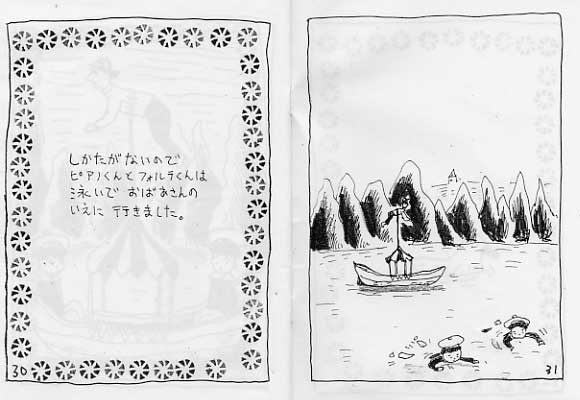 しかたがないので
ピアノくんとフォルテくんは
泳いで おばあさんの
いえに 行きました。
30
31